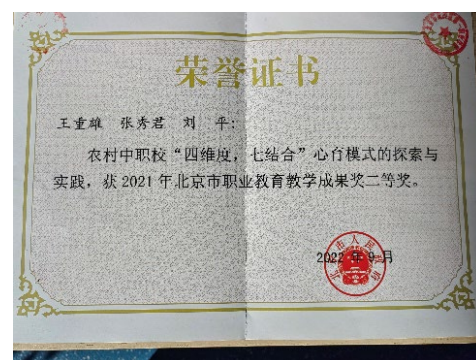 荣誉证书
王重雄 张秀君 刘 平:
农村中职校“四维度，七结合”心育模式的探索与
实践，获2021年北京市职业教育教学成果奖二等奖。
2022年9月